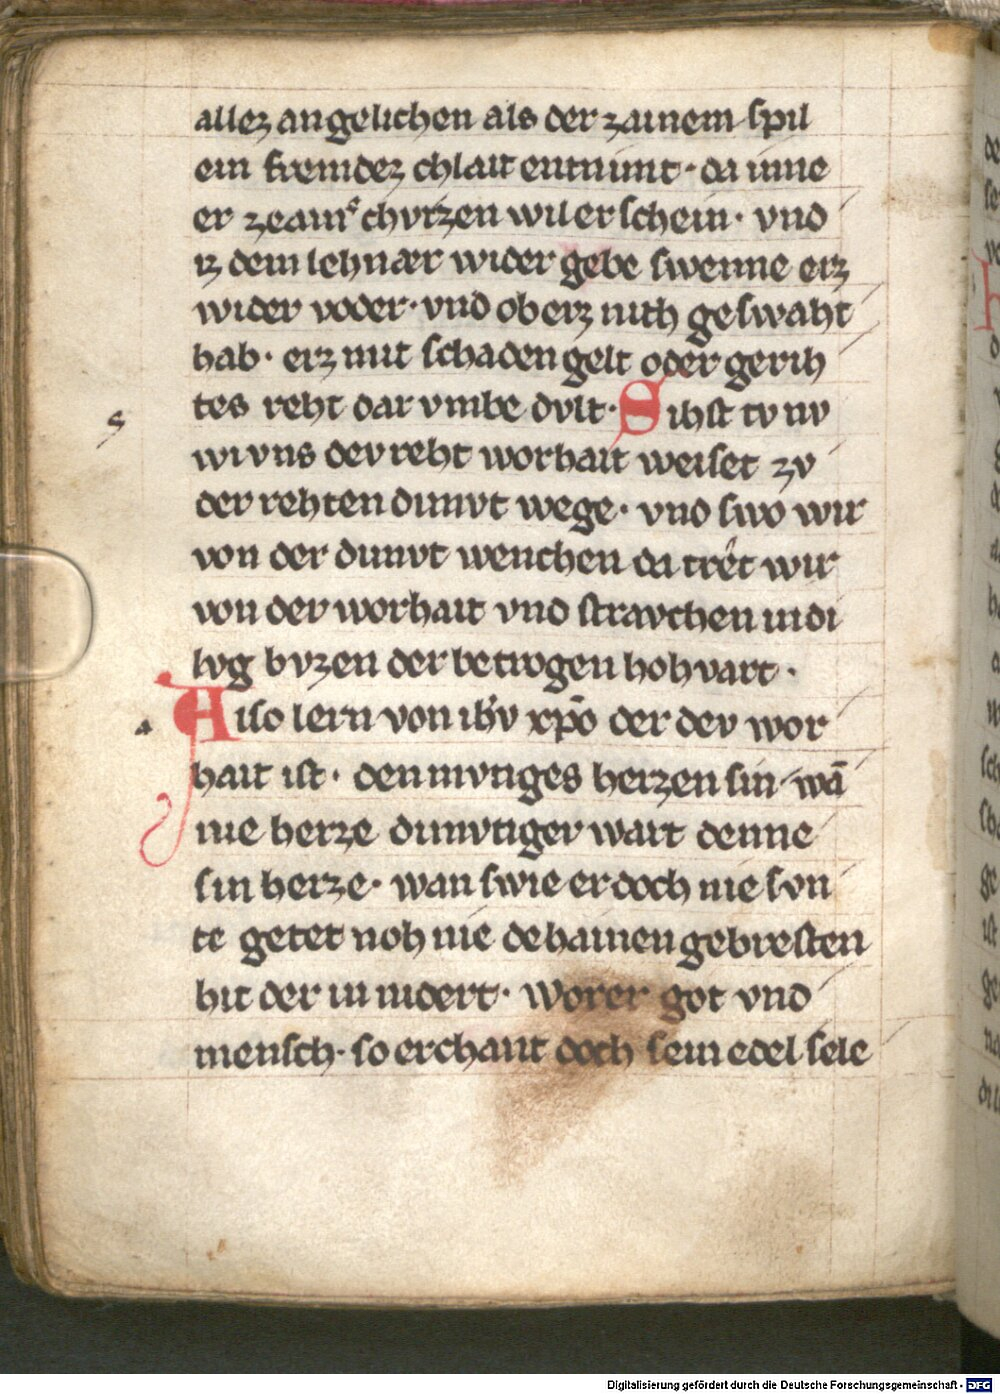 allez angelichen als der zainem spil
ein fremdez chlait entnimt · da inne
er ze ainr chvrzen wil erschein · vnd
iz dem lehnær wider gebe swenne erz
wider voder · vnd ob erz nith geswaht
hab · erz mit schaden gelt oder gerih
tes reht dar vmbe dvlt · Sihst tv nv
s
wi vns dev reht worhait weiset zv
der rehten dimvt wege · vnd swo wir
von der dimvt wenchen da tret wir
von der worhait vnd stravchen in di
lvg bvzen der betrogen hohvart ·
a
Also lern von ihv xpo der dev wor
hait ist · den mvtiges herzen sin · wā
nie herze dimvtiger wart denne
sin herze · wan swie er doch nie svn
te getet noh nie dehainen gebresten
hit der in nidert · Worer got vnd
mensch · so erchant doch sein edel sele
Digitalisierung gefördert durch die Deutsche Forschungsgemeinschaft - DFG